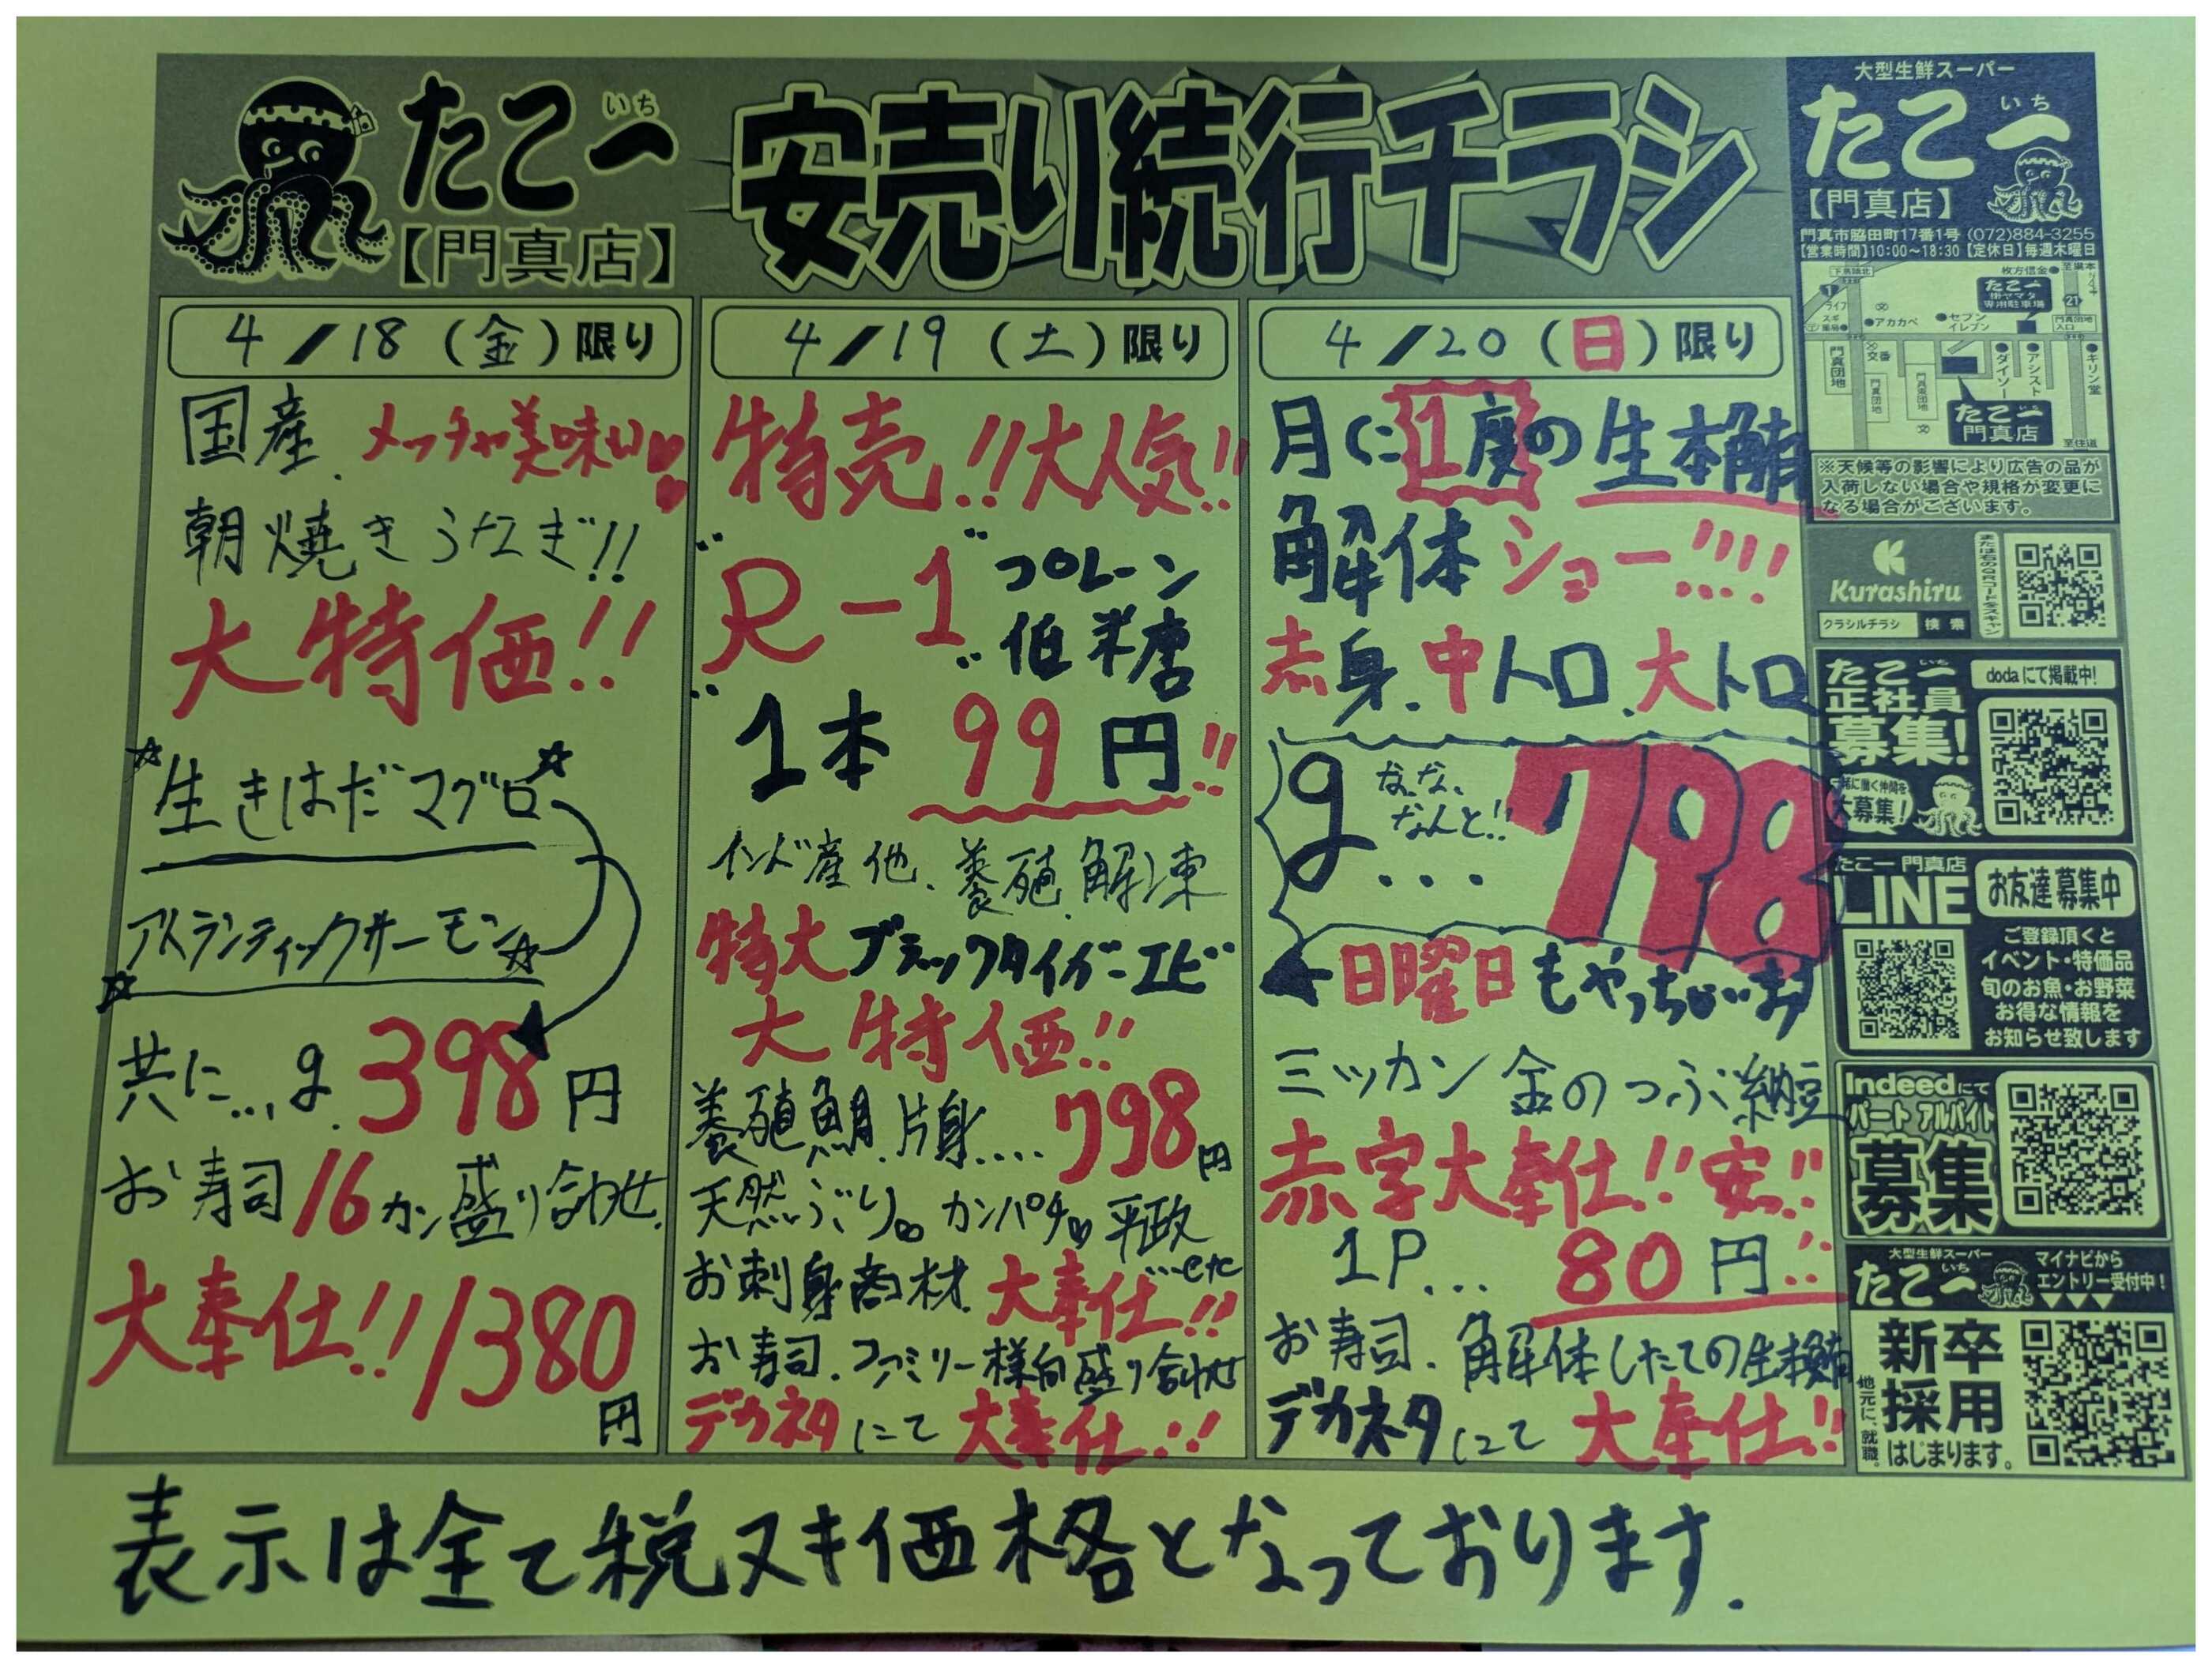 たこ一
いち
【門真店】
安売り続行チラシ
4/18(金)限り
国産.メッチャ美味い
朝焼きうなぎ!!
大特価!!
☆生きはだマグロ☆
☆アトランティックサーモン☆
共に...g.398円
お寿司16カン盛り合わせ.
大奉仕!!1380
円
4/19(土)限り
特売!!大人気!!
"R-1" プロレーン
低糖
"1本 99円!!
インド産他、養殖.解凍
特大ブラックタイガーエビ
大特価!!
養殖鯛.片身....798円
天然ぶり。カンパチ。平政
...etc
お刺身商材.大奉仕!!
お寿司.ファミリー様向盛り合わせ
デカネタにて大奉仕!!
4/20(日)限り
月に1度の生本鮪
解体ショー!!!!
赤身.中トロ.大トロ
g...なな、
なんと!!
798
日曜日もやっちゃいます
ミツカン 金のつぶ納豆
赤字大奉仕!!安!!
1P...80円!!
お寿司.解体したての生本鮪
デカネタにて大奉仕!!
大型生鮮スーパー
たこ一
いち
【門真店】
門真市脇田町17番1号 (072)884-3255
【営業時間】10:00〜18:30【定休日】毎週木曜日
枚方信金
たこ一
専用駐車場
ライフ
アカカベ
セブン
イレブン
交番
門真団地
ダイソー
アシスト
キリン堂
たこ一
門真店
至住道
※天候等の影響により広告の品が
入荷しない場合や規格が変更に
なる場合がございます。
Kurashiru
クラシルチラシ 検索
または右のQRコードをスキャン
たこ一
いち
正社員
募集!
dodaにて掲載中!
一緒に働く仲間を
大募集!
たこ一 門真店
LINE
お友達募集中
ご登録頂くと
イベント・特価品
旬のお魚・お野菜
お得な情報を
お知らせ致します
Indeedにて
パート アルバイト
募集
大型生鮮スーパー
たこ一
いち
マイナビから
エントリー受付中!
▼▼▼
地元に、就職。
新卒
採用
はじまります。
表示は全て税ヌキ価格となっております.